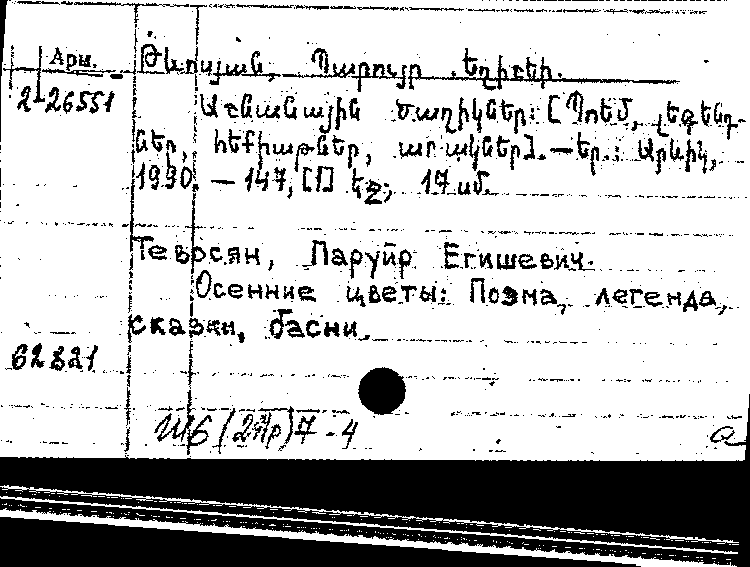 Арм.
Թևոսյան, Պարույր Եղիշեի.
2-26551
Աշնանային ծաղիկներ: [Պոեմ, լեգենդ-
ներ, հեքիաթներ, առակներ]. — Եր.: Արևիկ,
1990. — 147, [1] էջ; 17 սմ.
Тевосян, Паруйр Егишевич.
Осенние цветы: Поэма, легенда,
сказки, басни.
62821
Ш6(2Ар)7-4